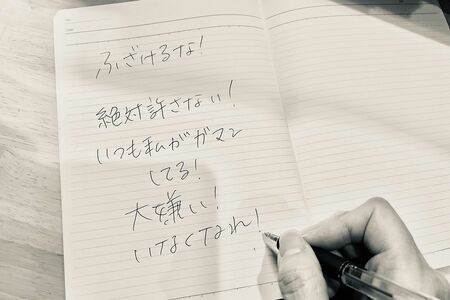 ふざけるな!
絶対許さない!
いつも私がガマン
してる!
大嫌い!
いなくなれ!